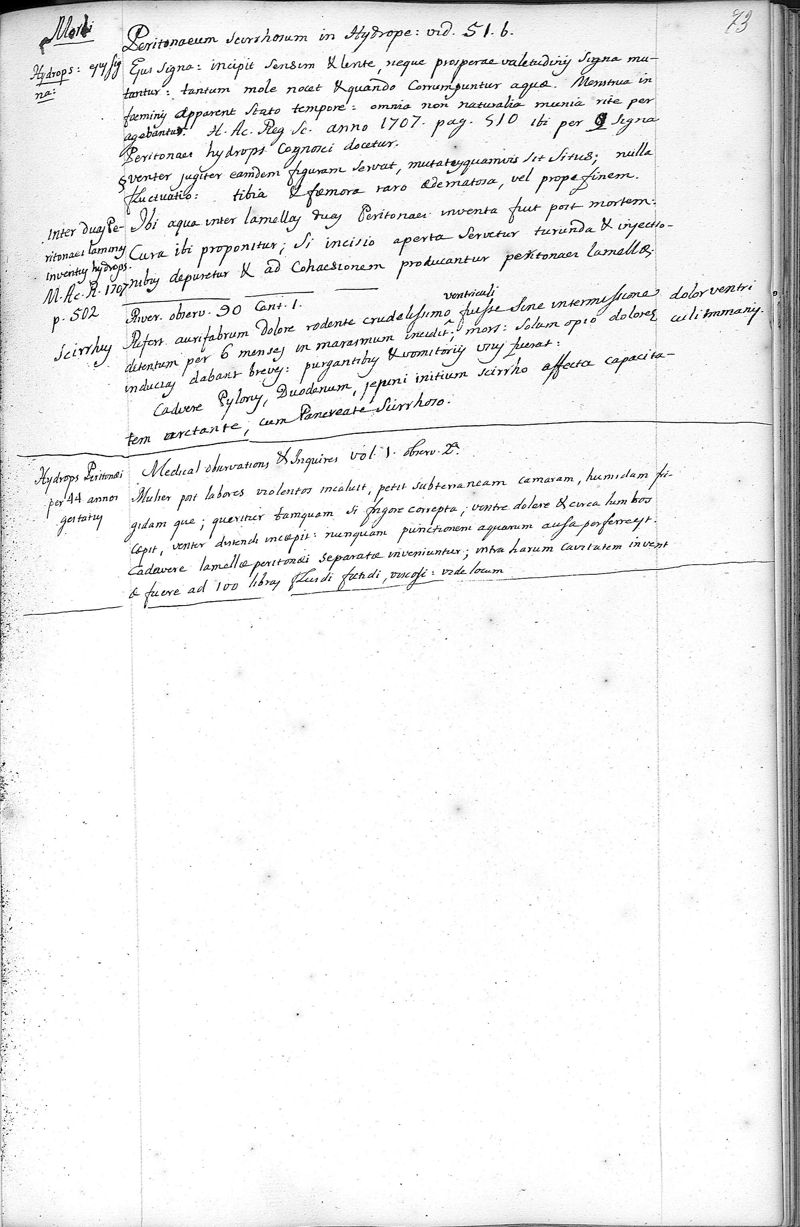 73
Morbi
Peritonaeum scirrhosum in Hydrope: vid. 51. b.
Hydrops: ejus sig
na:
Ejus signa: incipit sensim & lente, neque prosperae valetudinis signa mu-
tantur: tantum mole nocet & quando corrumpuntur aquae. Menstrua in
foeminis apparent stato tempore: omnia non naturalia munia rite per
agebantur. H. Ac. Reg. Sc. anno 1707. pag. 510 ibi per signa
Peritonaei hydrops cognosci docetur.
venter jugiter eamdem figuram servat, mutatusquamvis sit situs; nulla
fluctuatio: tibia & foemora raro oedematosa, vel prope finem.
Inter duas Pe-
ritonaei laminas
inventus hydrops.
M. Ac. R. 1707
p. 502
Ibi aqua inter lamellas duas Peritonaei inventa fuit post mortem.
Cura ibi proponitur; si incisio aperta servetur turunda & injectio-
nibus depuretur & ad cohaesionem producantur peritonaei lamellae.
River. observ. 90 Cent. 1.
Scirrhus
Refert aurifabrum dolore rodente crudelissimo ventriculi fuisse sine intermissione
detentum per 6 menses in marasmum incidit, mors: solum opio dolores
inducias dabant breves: purgantibus & vomitoriis usus fuerat:
dolor ventri
culi immanis.
Cadvere Pylorus, Duodenum, jejuni initium scirrho affecta capacita-
tem arctante, cum Pancreate scirrhoso.
Hydrops Peritonaei
per 44 annos
gestatus
Medical observations & Inquires vol. 1. observ. 2a.
Mulier post labores violentos incaluit, petit subterraneam camaram, humidam fri-
gidam que; queritur tamquam si frigore correpta, ventre dolere & circa lumbos
cepit, venter distendi incaepit: nunquam punctionem aquarum ausa perferre est.
Cadavere lamellae peritonaei separatae inveniuntur; intra harum cavitatem invent
ae fuere ad 100 libras fluidi foetidi, viscosi: vide locum